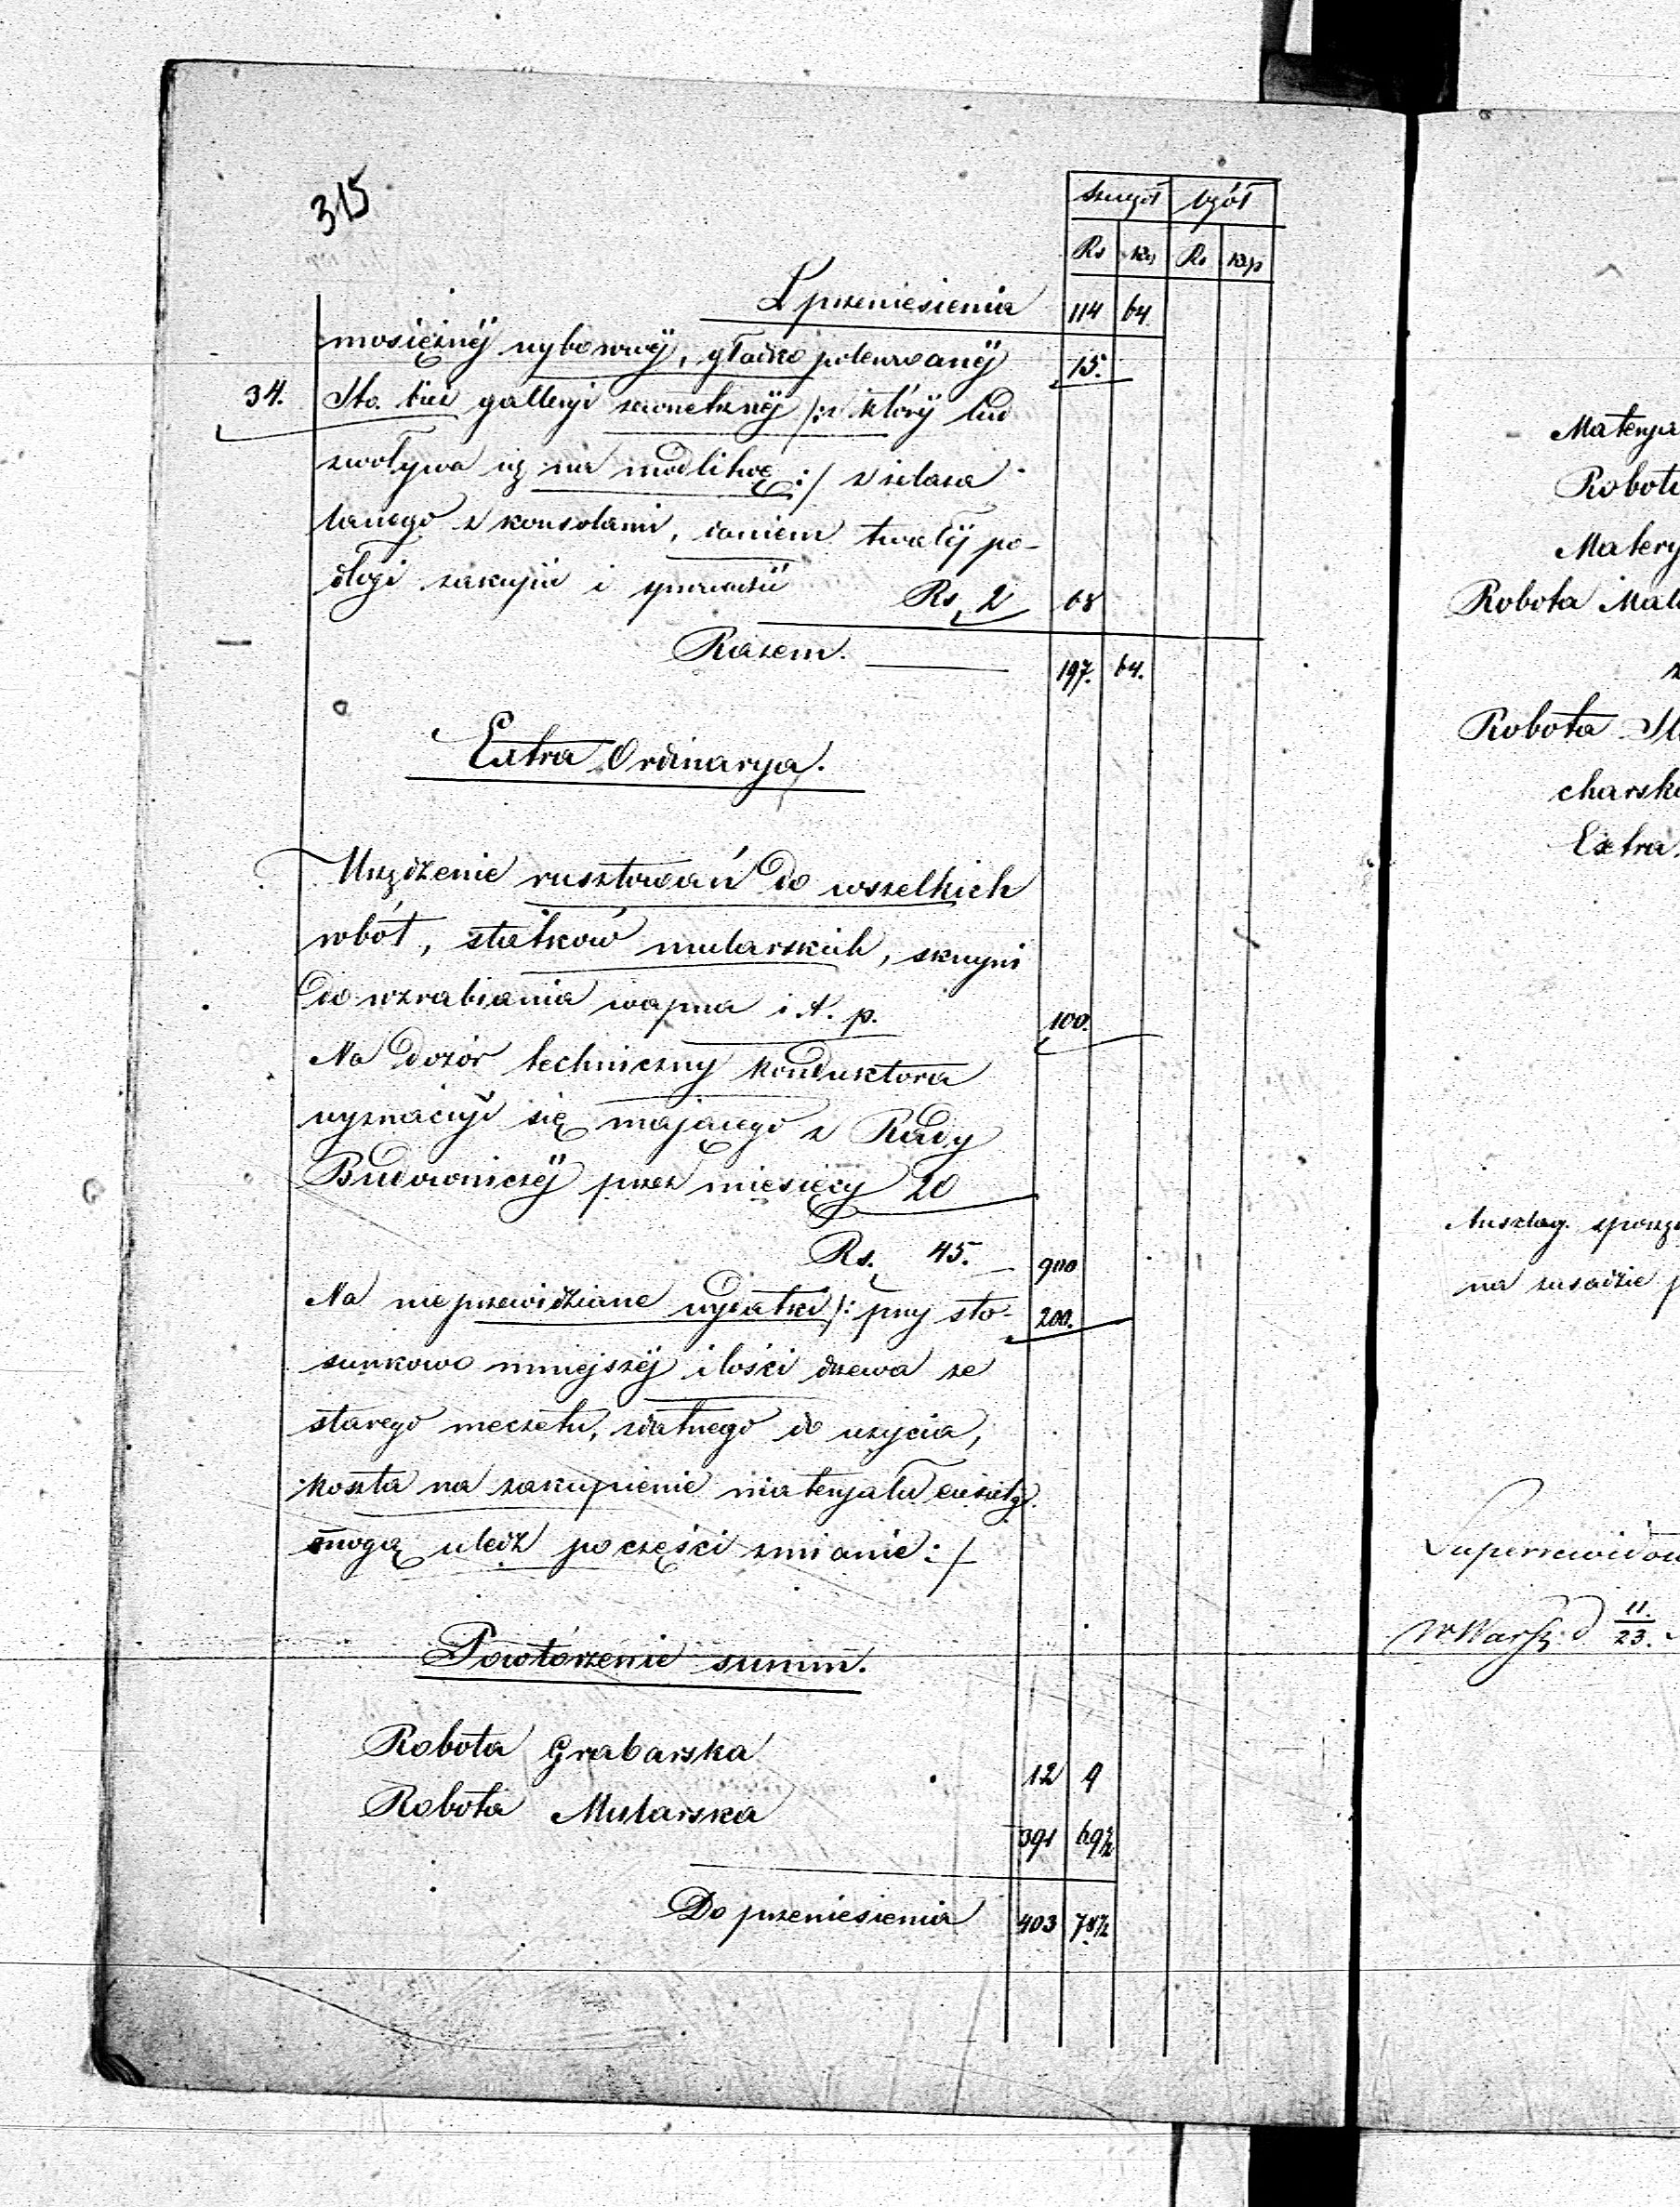 315
szczegół ogół
Rs kp Rs kop
Z przeniesienia 114 64.
mosiężnéj wyborowéj, gładko polerowanéj 15.
34. Sto. galleryi zewnetrznéj /: z któréj lud
zwoływa się na modlitwę :/ z żelaza
lanego z konsolami, daniem trwałéj po-
dłogi zakupić i sprowadzić Rs 2 68
Razem. 197. 64.
Extra Ordinarya.
Urządzenie rusztowań do wszelkich
robót, statków mularskich, skrzyni
do wzrabiania wapna i t. p. 100.
Na dozór techniczny konduktora
wyznaczyć się mającego z Rady
Budowniczéj przez miesięcy 20
Rs. 45. 900
Na nieprzewidziane wydatki /: przy sto- 200.
sunkowo mniejszéj ilości drzewa ze
starego meczetu, zdatnego do użycia,
koszta na zakupienie materyału
mogą uledz po części zmianie :/
Powtórzenie summ.
Robota Grabarska 12 9
Robota Mularska 391 69½
Do przeniesienia 403 78½
Materya
Robota
Matery
Robota Mal
Robota
charsk
Extra
Anszlag. sporzą
na zasadzie p
Superrewidow
w Warsz. d 11./23.